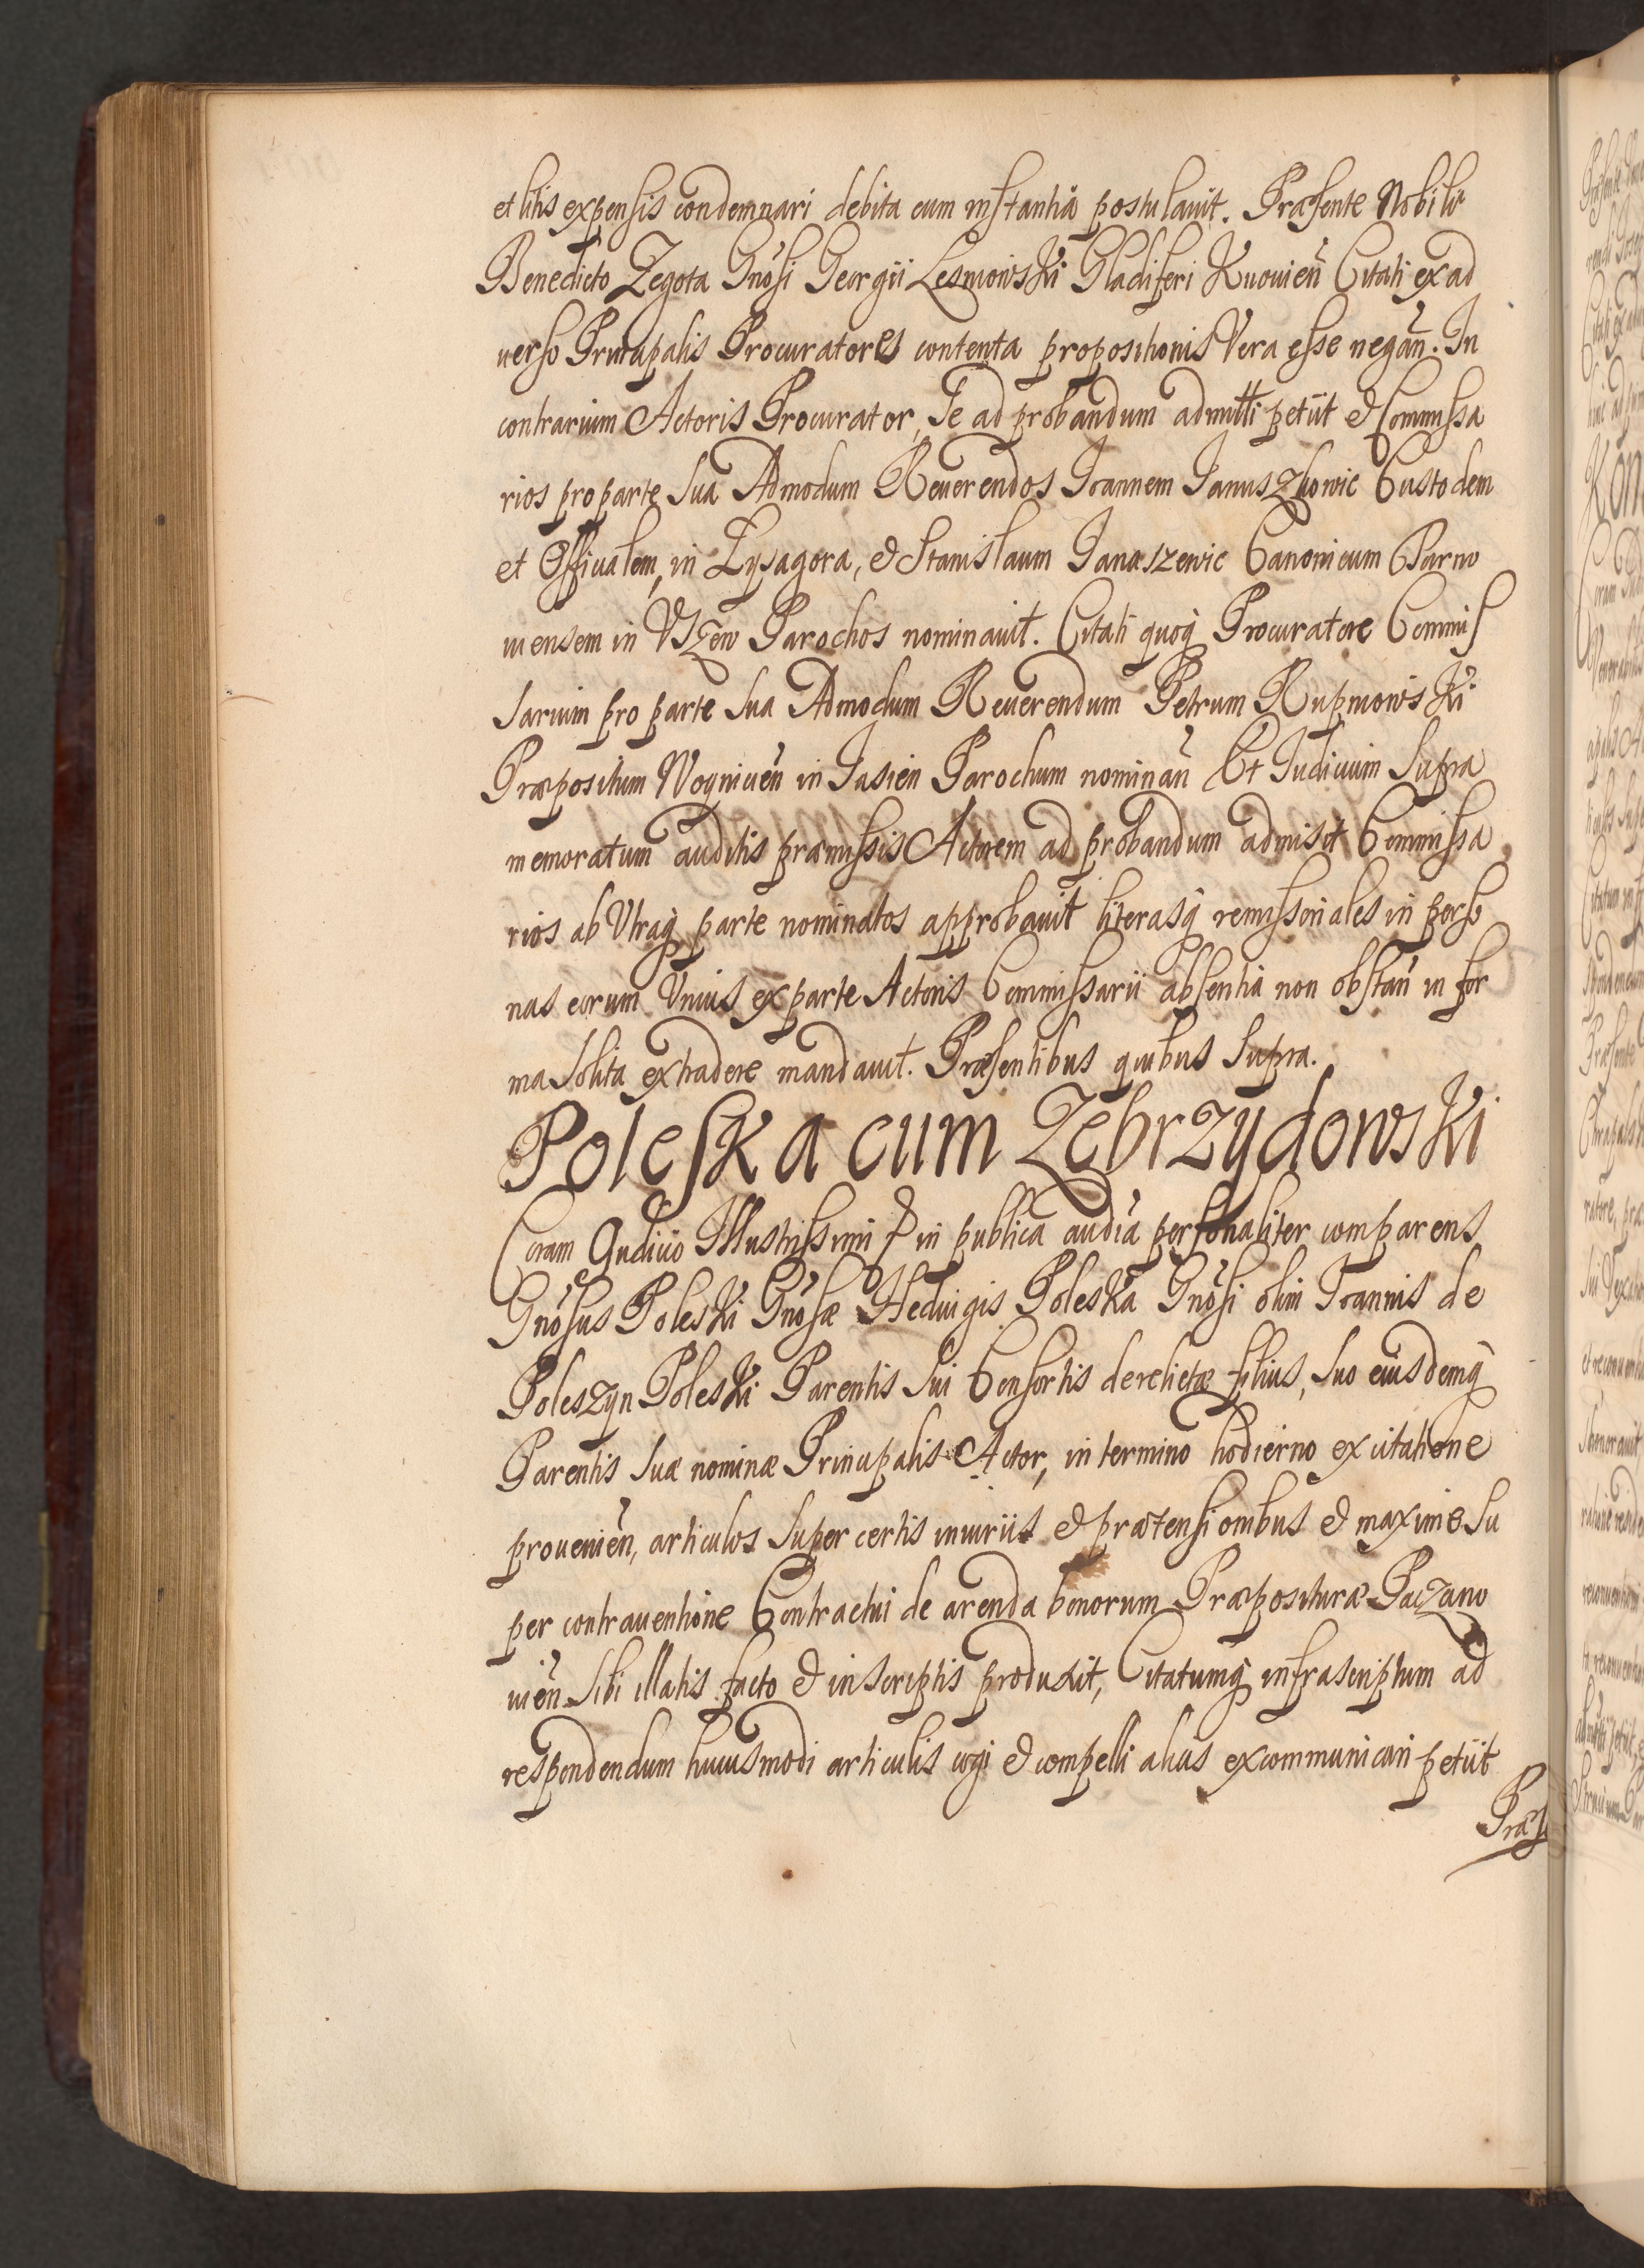 et litis expensis condemnari debita cum instantia postulauit. Præsente Nobili
Benedicto Zegota Gnosi Georgii Lesniowski Gladiferi Kuouien Citati ex ad
uerso Principalis Procuratore contenta propositionis Vera esse negan. In
contrarium Actoris Procurator, Se ad probandum admitti petiit et Commissa
rios pro parte Sua Admodum Reuerendos Joannem Januszkowic Custodem
et Officialem, in Lysagora, et Stanislaum Janaszewic Canonicum Tarno
uiensem in Vszew Parochos nominauit. Citati quoq Procuratore Commis
sarium pro parte Sua Admodum Reuerendum Petrum Rupniowski
Præpositum Woyniuen in Jasien Parochum nominan Et Judicium Supra
memoratum auditis præmissis Actorem ad probandum admisit Commissa
rios ab Vtraq parte nominatos approbauit literasq remissoriales in perso
nas eorum Vnius ex parte Actoris Commissarii absentia non obstan in for
ma Solita extradere mandauit. Præsentibus quibus Supra.
Poleska cum Zebrzydowski
Coram Judicio Illustrissimi et in publica audia personaliter comparens
Gnosus Poleski Gnosæ Heduigis Poleska Gnosi olim Joannis de
Poleszyn Poleski Parentis Sui Consortis derelictæ filius, Suo eiusdemq
Parentis Suæ nominæ Principalis Actor, in termino hodierno ex citatione
prouenien, articulos Super certis iniuriis et prætensionibus et maxime Su
per contrauentione Contractui de arenda bonorum Præposituræ Paczano
uien Sibi illatis facto et in scriptis produxit, Citatumq infrascriptum ad
respondendum huiusmodi articulis cogi et compelli alias excommunicari petiit
Præs